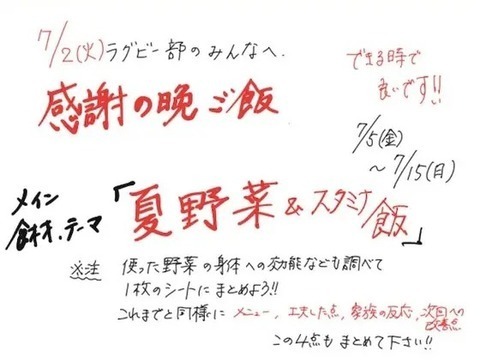 7/2(火)ラグビー部のみんなへ.
感謝の晩ご飯
できる時で
良いです!!
7/5(金)
～7/15(日)
メイン
食材.テーマ
「夏野菜&スタミナ飯」
※注 使った野菜の身体への効能なども調べて
1枚のシートにまとめよう!!
これまでと同様に メニュー, 工夫した点, 家族の反応, 次回への
改善点
この4点もまとめて下さい!!